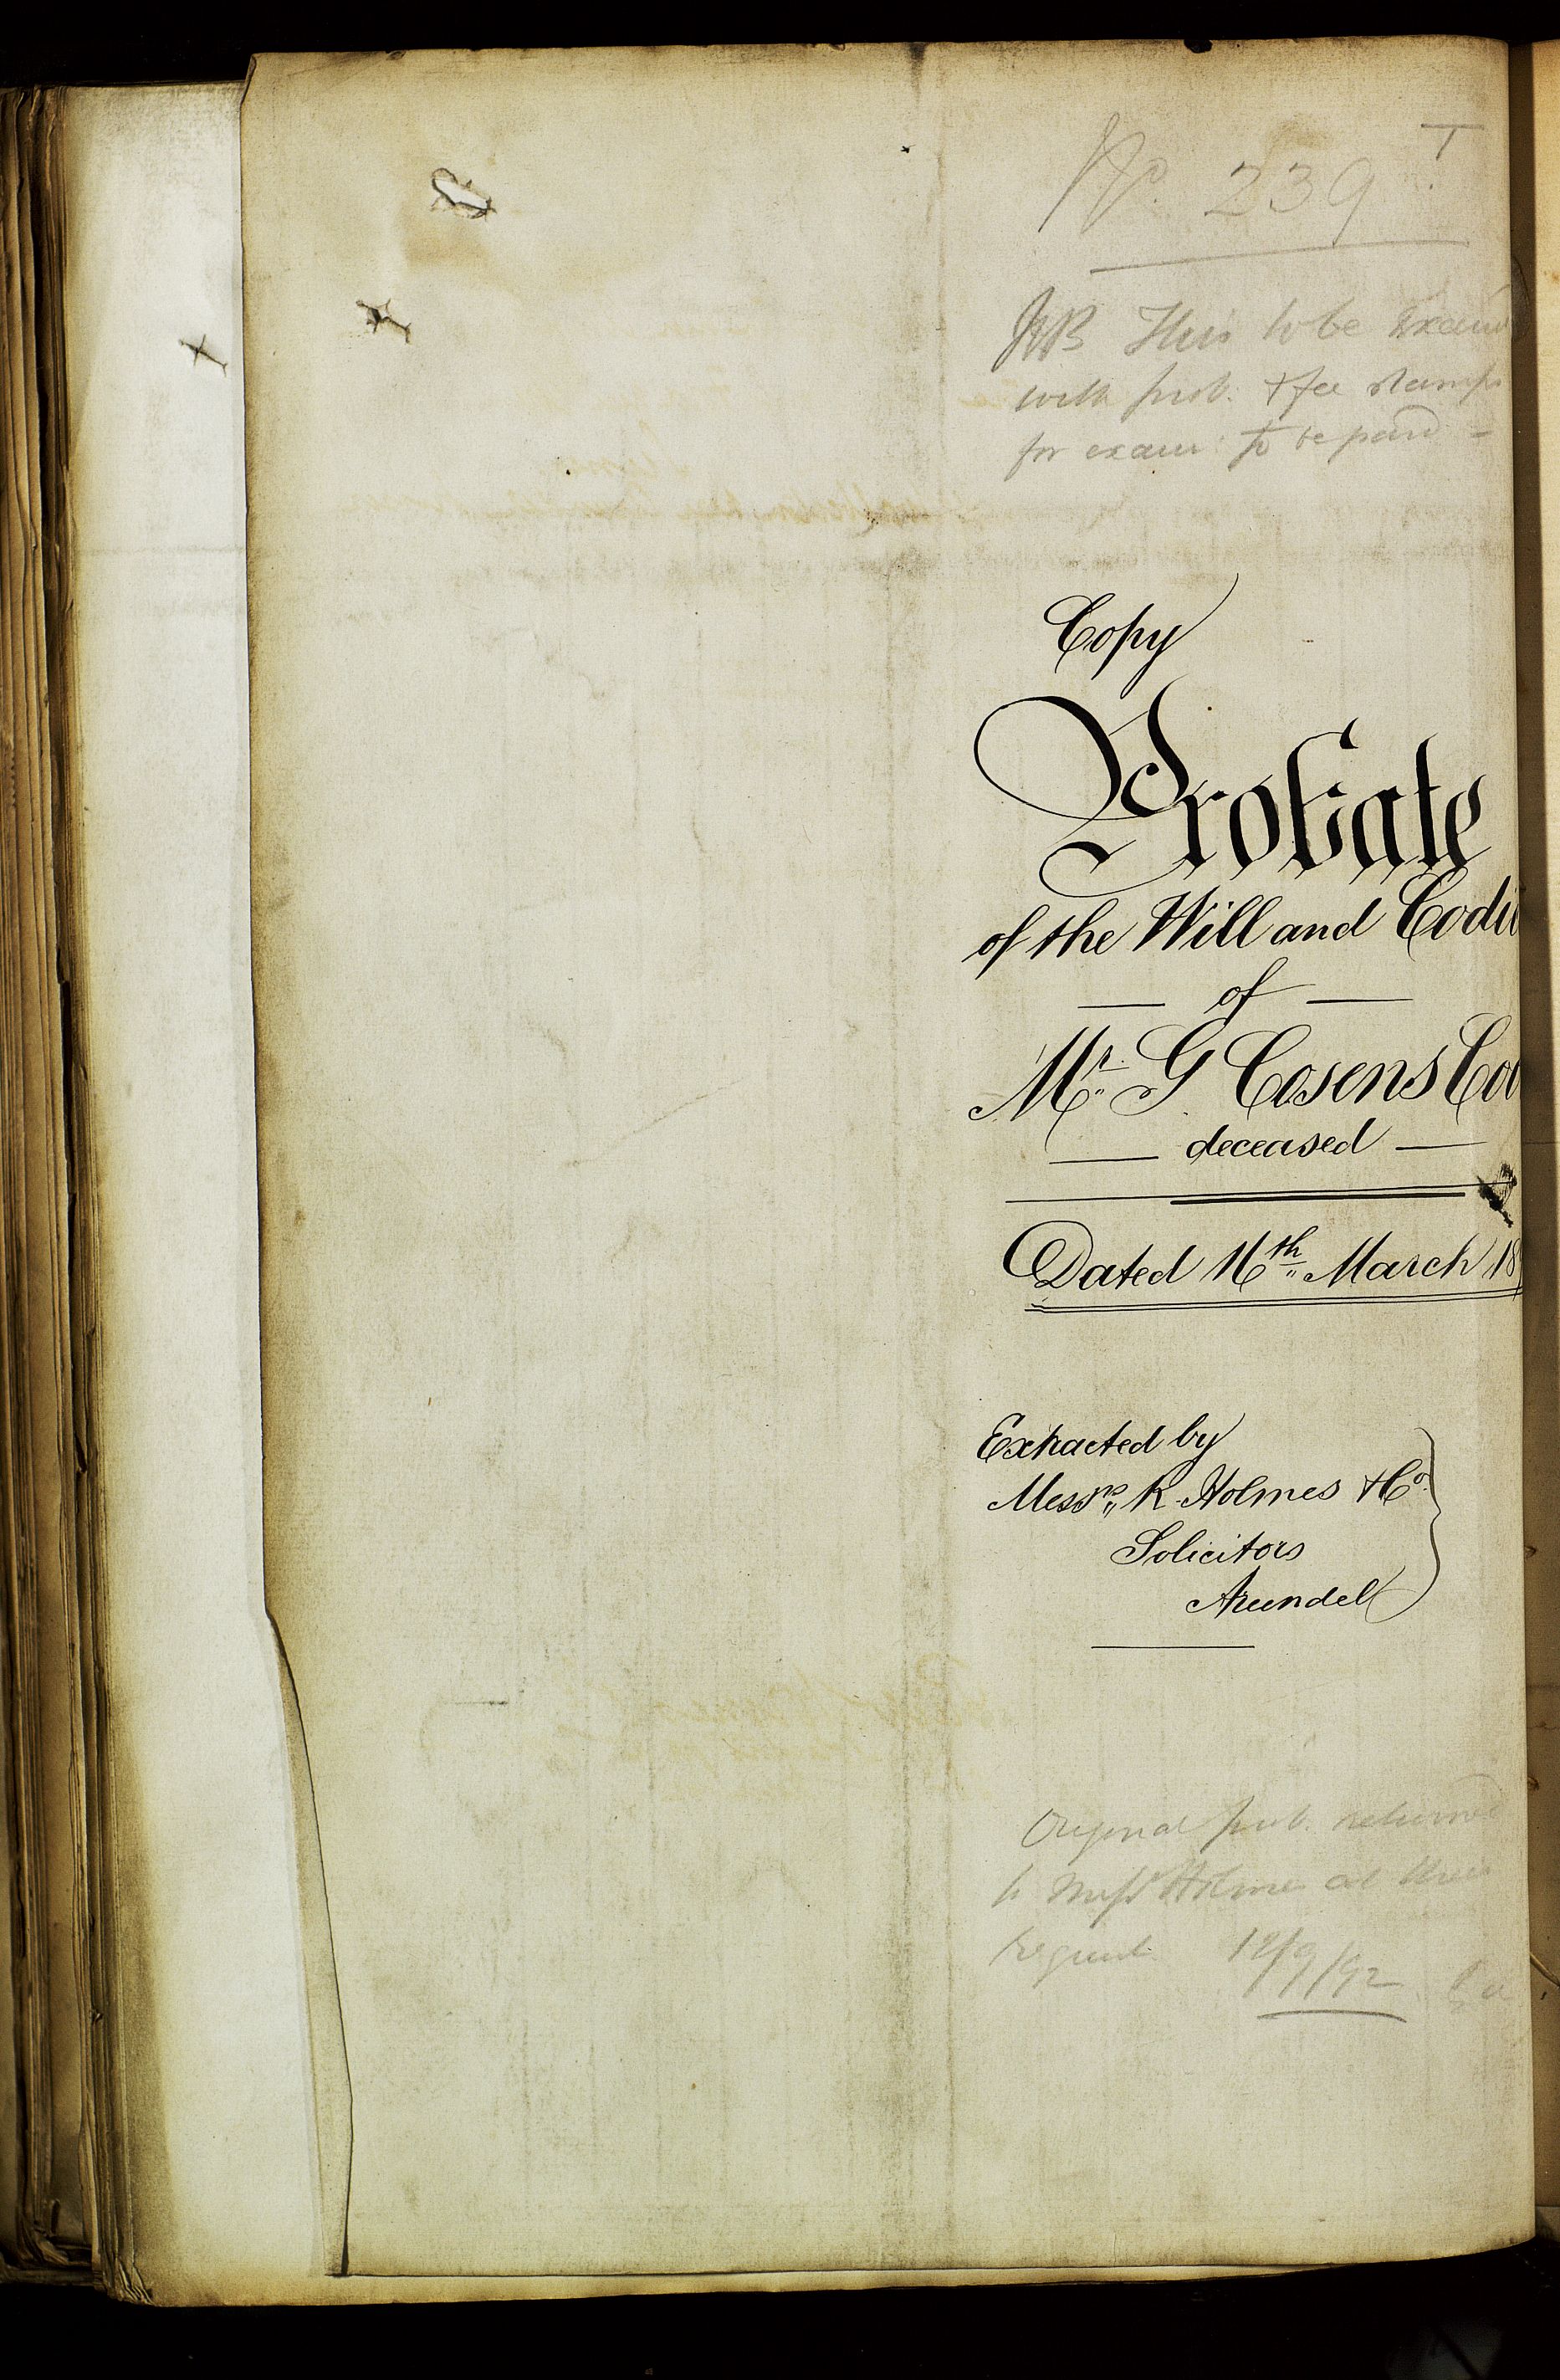 No. 239 T
NB This to be Exam
with prob. & fee stamps
for exam: to be paid -
Copy
Probate
of the Will and Codi
— of —
Mr. G Cosens Co
— deceased —
Dated 16th March 18
Extracted by
Messrs R. Holmes & Co.
Solicitors
Arundel
Original prob. returned
to Messrs Holmes at their
request 12/9/92